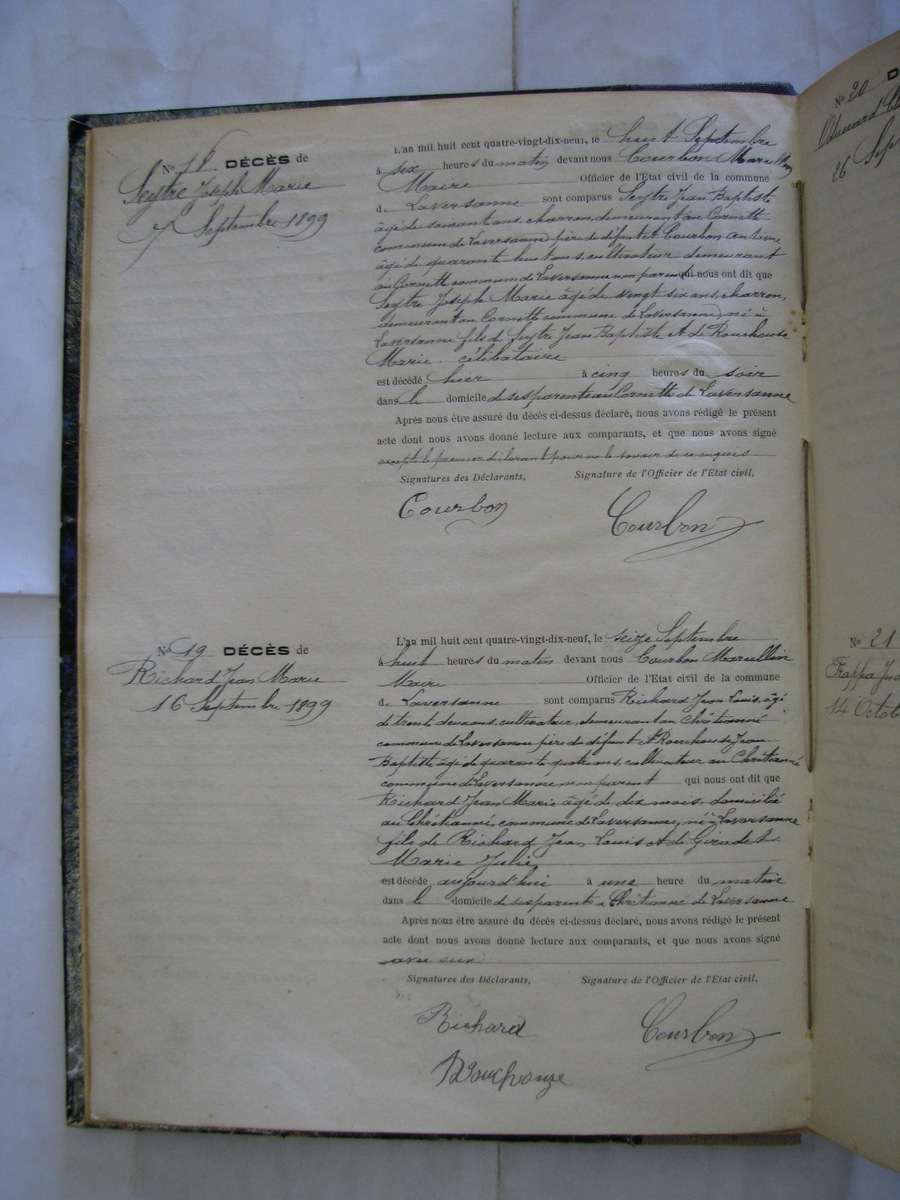 No 18 DÉCÈS de
Seytre Joseph Marie
7 Septembre 1899
L'an mil huit cent quatre-vingt-dix-neuf, le huit Septembre
à six heures du matin devant nous Courbon Marcellin
Maire Officier de l'Etat civil de la commune
de Laversanne sont comparus Seytre Jean Baptiste
âgé de soixante ans, charron, demeurant au Cornett
commune de Laversanne père du défunt et Courbon Antoine
âgé de quarante huit ans, cultivateur demeurant
au Cornett commune de Laversanne non parent qui nous ont dit que
Seytre Joseph Marie âgé de vingt six ans, charron,
demeurant au Cornette commune de Laversanne, né à
Laversanne fils de Seytre Jean Baptiste et de Rouchouse
Marie. célibataire
est décédé hier à cinq heures du soir
dans le domicile de ses parents au Cornette de Laversanne
Après nous être assuré du décès ci-dessus déclaré, nous avons rédigé le présent
acte dont nous avons donné lecture aux comparants, et que nous avons signé
excepté le premier déclarant pour ne le savoir de ce requis
Signatures des Déclarants, Signature de l'Officier de l'Etat civil,
Courbon Courbon
No 19 DÉCÈS de
Richard Jean Marie
16 Septembre 1899
L'an mil huit cent quatre-vingt-dix-neuf, le seize Septembre
à huit heures du matin devant nous Courbon Marcellin
Maire Officier de l'Etat civil de la commune
de Laversanne sont comparus Richard Jean Louis, âgé
de trente deux ans, cultivateur, demeurant au Chrétianné
commune de Laversanne père du défunt et Rouchouse Jean
Baptiste âgé de quarante quatre ans, cultivateur au Chrétianné
commune de Laversanne non parent qui nous ont dit que
Richard Jean Marie âgé de dix mois, domicilié
au Chrétianné, commune de Laversanne, né à Laversanne
fils de Richard Jean Louis et de Girodet
Marie Julie
est décédé aujourd'hui à une heure du matin
dans le domicile de ses parents à Chrétianné de Laversanne
Après nous être assuré du décès ci-dessus déclaré, nous avons rédigé le présent
acte dont nous avons donné lecture aux comparants, et que nous avons signé
avec eux
Signatures des Déclarants, Signature de l'Officier de l'Etat civil,
Richard Courbon
Rouchouze
No 20 D
26 Sep
No 21
Frappa
14 Octob